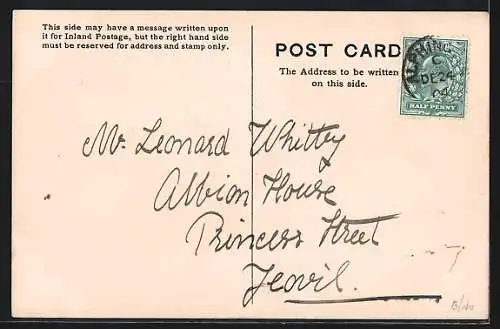 This side may have a message written upon
it for Inland Postage, but the right hand side
must be reserved for address and stamp only.
POST CARD
The Address to be written
on this side.
C
DE 24
04
HALF PENNY
Mr Leonard Whitty
Albion House
Princess Street
Yeovil.